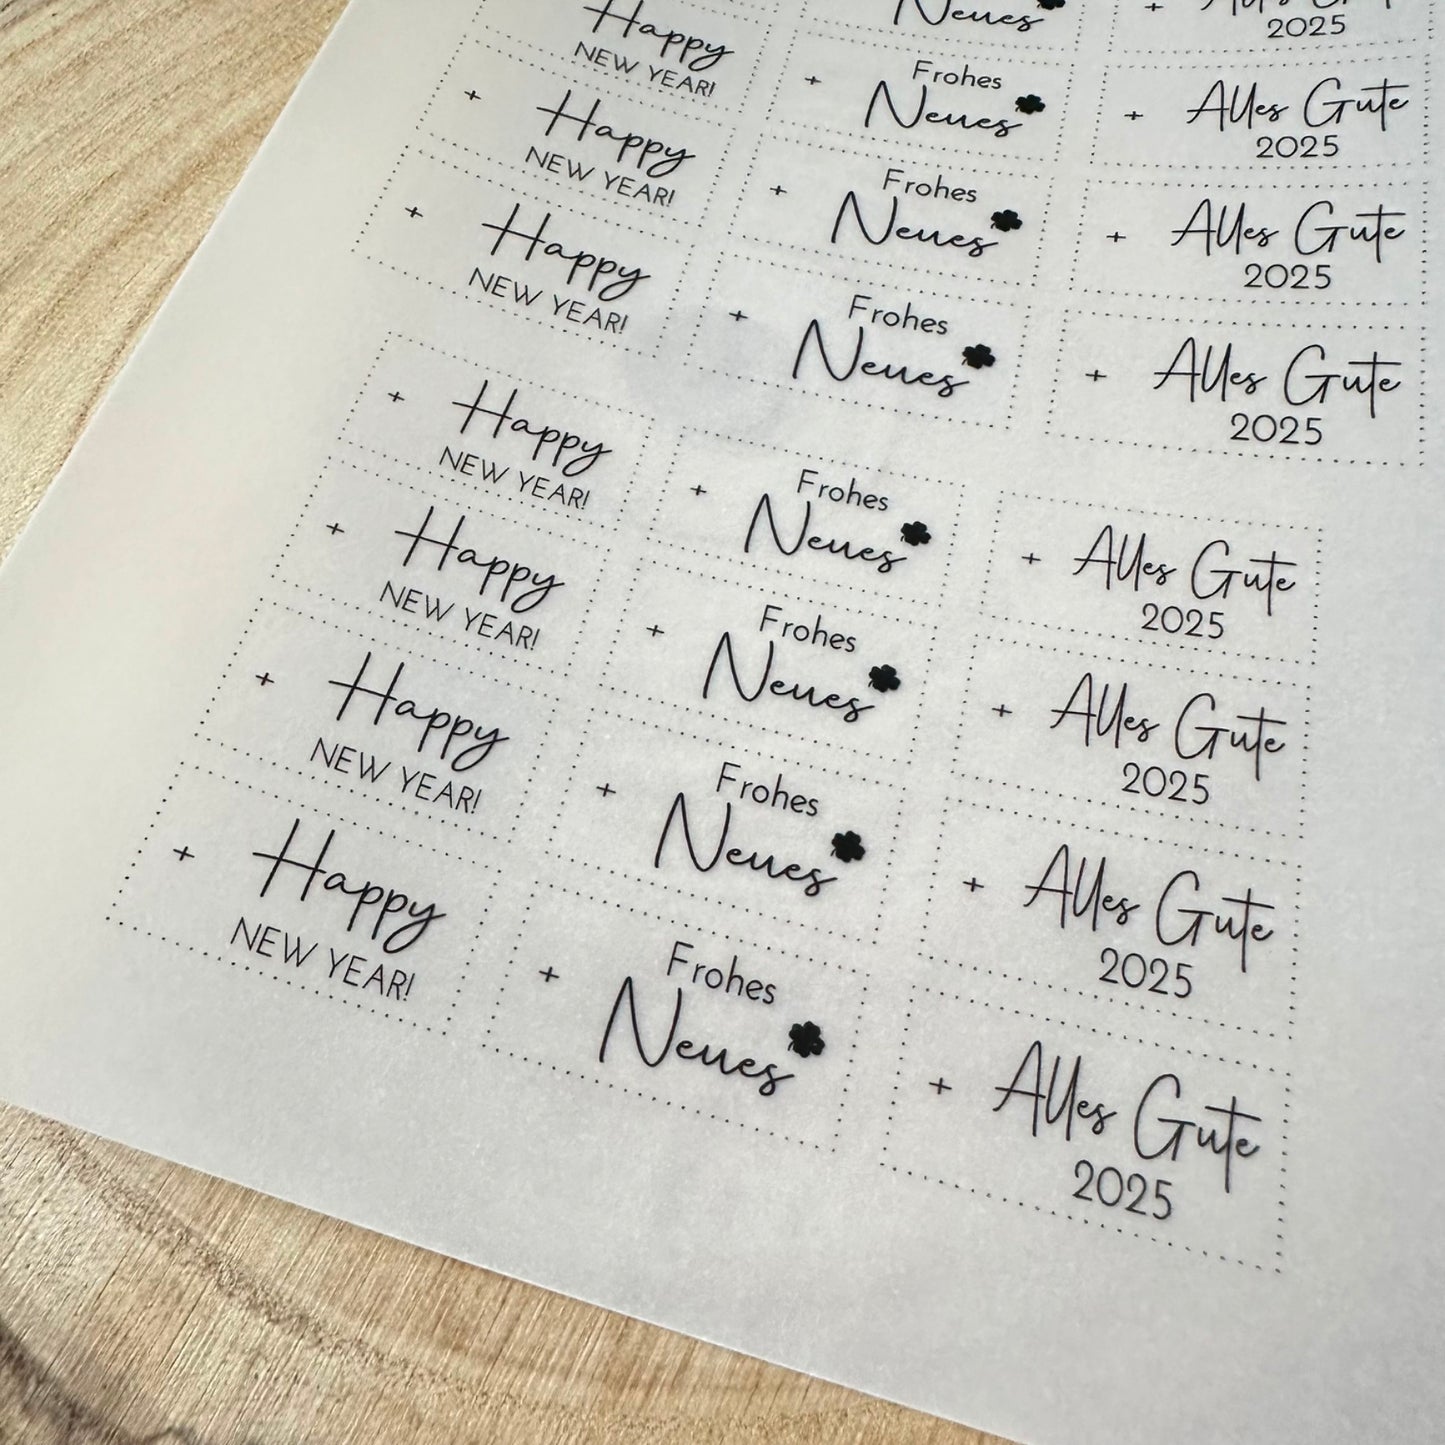 Neues
Alles Gute
2025
Happy
NEW YEAR!
Frohes
Neues
Alles Gute
2025
Happy
NEW YEAR!
Frohes
Neues
Alles Gute
2025
Happy
NEW YEAR!
Frohes
Neues
Alles Gute
2025
Happy
NEW YEAR!
Frohes
Neues
Alles Gute
2025
Happy
NEW YEAR!
Frohes
Neues
Alles Gute
2025
Happy
NEW YEAR!
Frohes
Neues
Alles Gute
2025
Happy
NEW YEAR!
Frohes
Neues
Alles Gute
2025